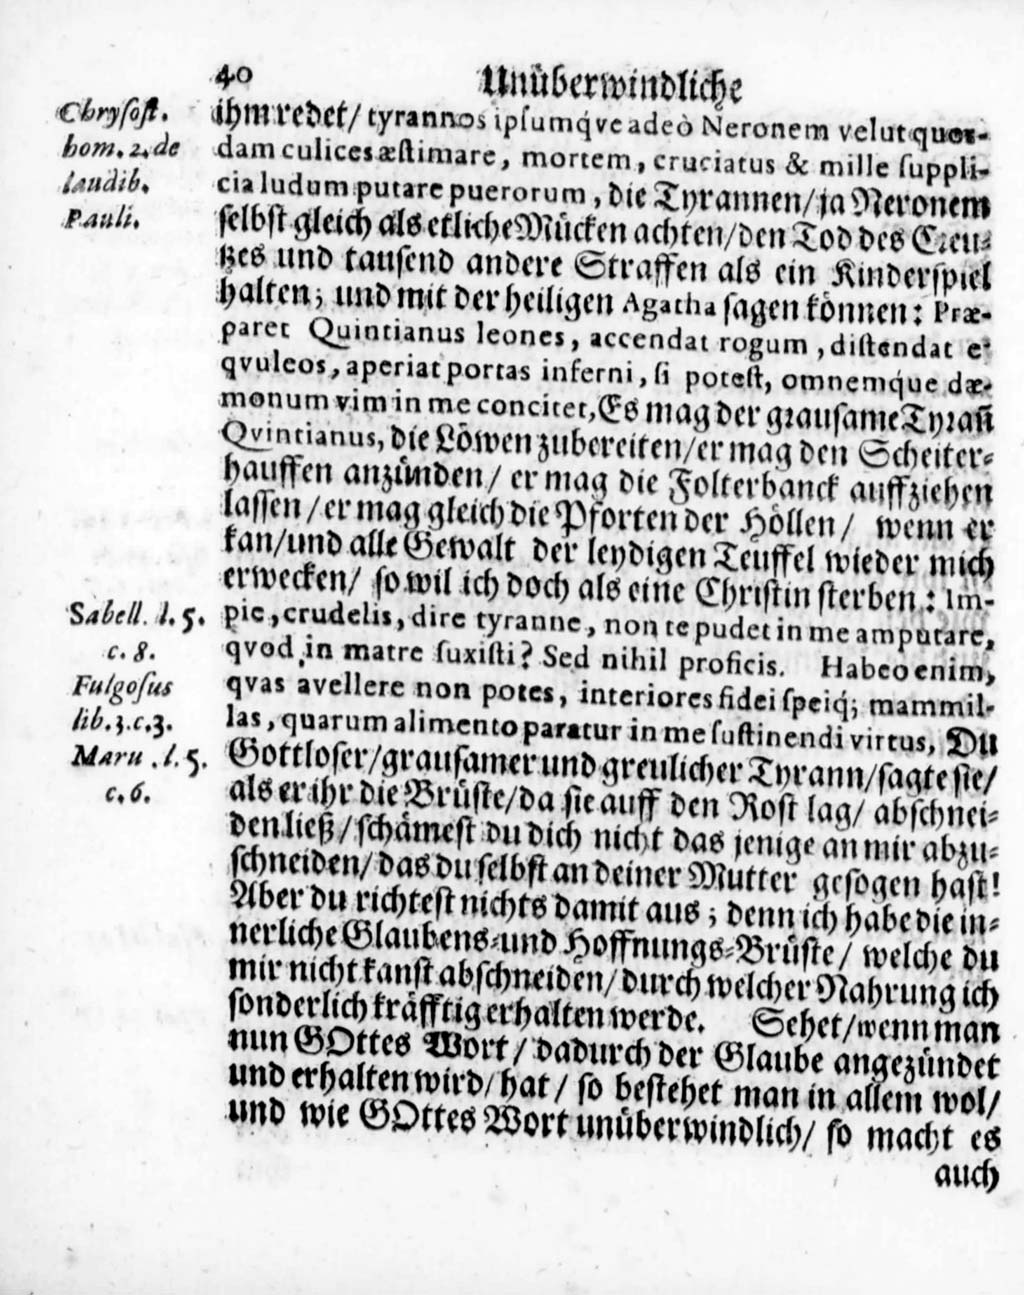 40 Unüberwindliche
Chrysost.
hom. 2. de
laudib.
Pauli.
ihm redet/ tyrannos ipsumqve adeò Neronem velut quos-
dam culices æstimare, mortem, cruciatus & mille suppli-
cia ludum putare puerorum, die Tyrannen/ ja Neronem
selbst gleich als etliche Mücken achten/ den Tod des Creu-
tzes und tausend andere Straffen als ein Kinderspiel
halten; und mit der heiligen Agatha sagen können: Præ-
paret Quintianus leones, accendat rogum, distendat e-
qvuleos, aperiat portas inferni, si potest, omnemque dæ-
monum vim in me concitet, Es mag der grausame Tyrañ
Qvintianus, die Löwen zubereiten/ er mag den Scheiter-
hauffen anzünden/ er mag die Folterbanck auffziehen
lassen/ er mag gleich die Pforten der Höllen/ wenn er
kan/ und alle Gewalt der leydigen Teuffel wieder mich
erwecken/ so wil ich doch als eine Christin sterben: Im-
Sabell. l. 5.
c. 8.
Fulgosus
lib. 3. c. 3.
Maru. l. 5.
c. 6.
pie, crudelis, dire tyranne, non te pudet in me amputare,
qvod in matre suxisti? Sed nihil proficis. Habeo enim,
qvas avellere non potes, interiores fidei speiq́; mammil-
las, quarum alimento paratur in me sustinendi virtus, Du
Gottloser/ grausamer und greulicher Tyrann/ sagte sie/
als er ihr die Brüste/ da sie auff den Rost lag/ abschnei-
den ließ/ schämest du dich nicht das jenige an mir abzu-
schneiden/ das du selbst an deiner Mutter gesogen hast!
Aber du richtest nichts damit aus; denn ich habe die in-
nerliche Glaubens- und Hoffnungs-Brüste/ welche du
mir nicht kanst abschneiden/ durch welcher Nahrung ich
sonderlich kräfftig erhalten werde. Sehet/ wenn man
nun GOttes Wort/ dadurch der Glaube angezündet
und erhalten wird/ hat/ so bestehet man in allem wol/
und wie GOttes Wort unüberwindlich/ so macht es
auch